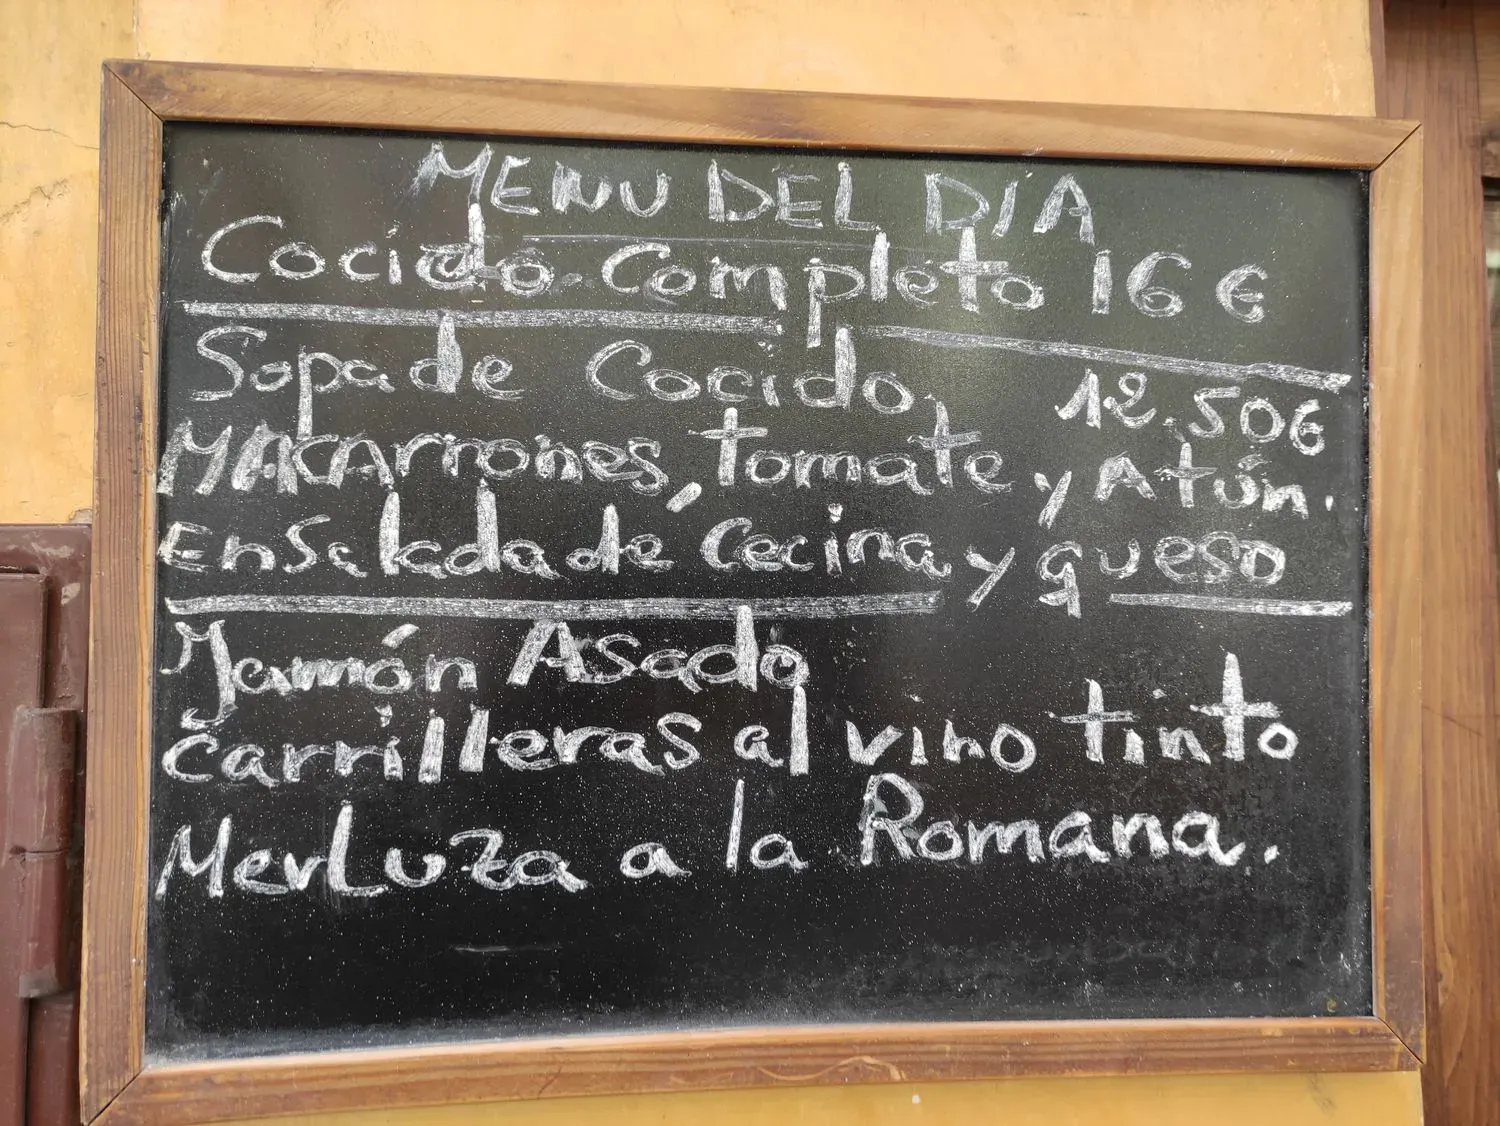 MENU DEL DIA
Cocido Completo 16 €
Sopa de Cocido, 12.50€
MACArrones, tomate y Atún.
Ensalada de Cecina y queso
Jamón Asado
Carrilleras al vino tinto
Merluza a la Romana.